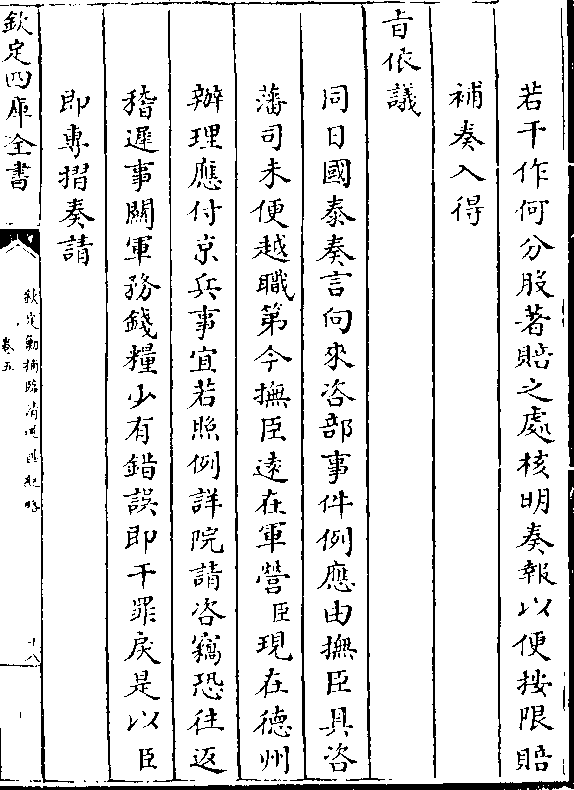 若干作何分股著賠之處核明奏報以便按限賠
補奏入得
旨依議
同日國泰奏言向來咨部事件例應由撫臣具咨
藩司未便越職第今撫臣遠在軍營臣現在德州
辦理應付京兵事宜若照例詳院請咨竊恐往返
稽遲事關軍務錢糧少有錯誤即干罪戾是以臣
即專摺奏請
欽定四庫全書
欽定勦捕臨清逆匪紀略
卷五
十八